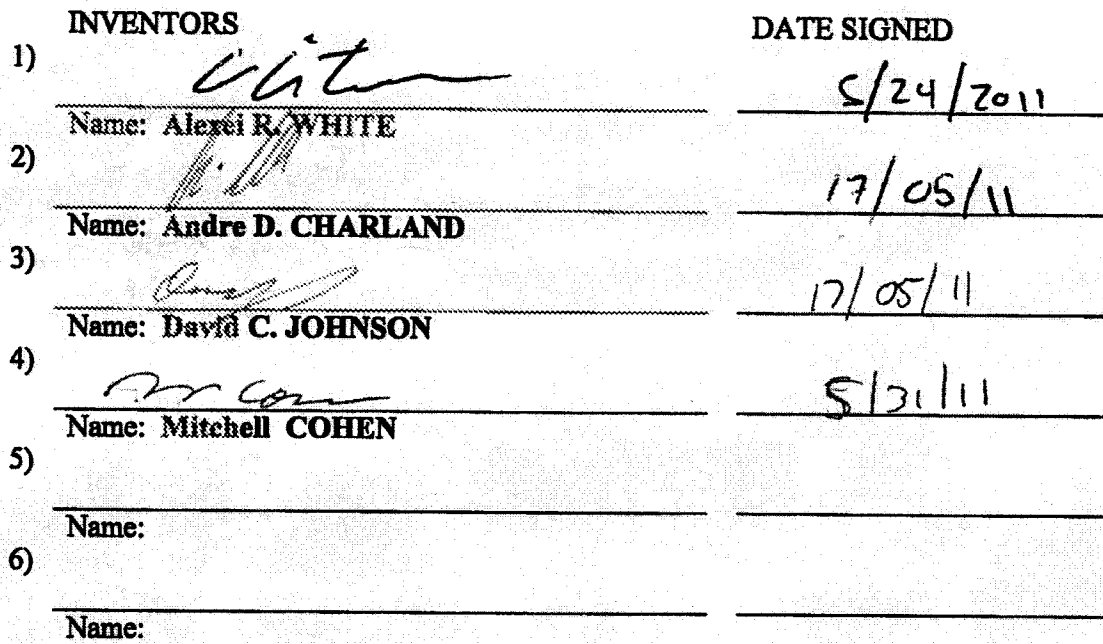 INVENTORS DATE SIGNED
1) 5/24/2011
Name: Alexei R. WHITE
2) 17/05/11
Name: Andre D. CHARLAND
3) 17/05/11
Name: David C. JOHNSON
4) 5/31/11
Name: Mitchell COHEN
5)
Name:
6)
Name: